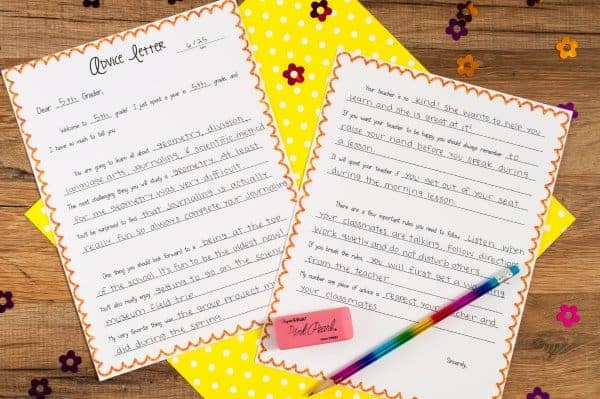 ADVICE LETTER
6/25
Dear 5th Grader,
Welcome to 5th grade! I just spent a year in 5th grade, and
I have so much to tell you.
You are going to learn all about geometry, division,
language arts, journaling, & scientific method
The most challenging thing you will study is geometry. At least
for me geometry was very difficult.
You'll be surprised to find that journaling is actually
really fun so always complete your journaling
One thing you should look forward to is being at the top
of the school. It's fun to be the oldest now!
You'll also really enjoy getting to go on the science
museum field trip.
My very favorite thing was the group project we
did during the spring
Your teacher is so kind! She wants to help you
learn and she is great at it!
If you want your teacher to be happy you should always remember to
raise your hand before you speak during
a lesson.
It will upset your teacher if you get out of your seat
during the morning lesson.
There are a few important rules you need to follow. Listen when
your classmates are talking. Follow directions
work quietly and do not disturb others.
If you break the rules, you will first get a warning
from the teacher
My number one piece of advice is respect your teacher and
your classmates
Sincerely,
Pink Pearl